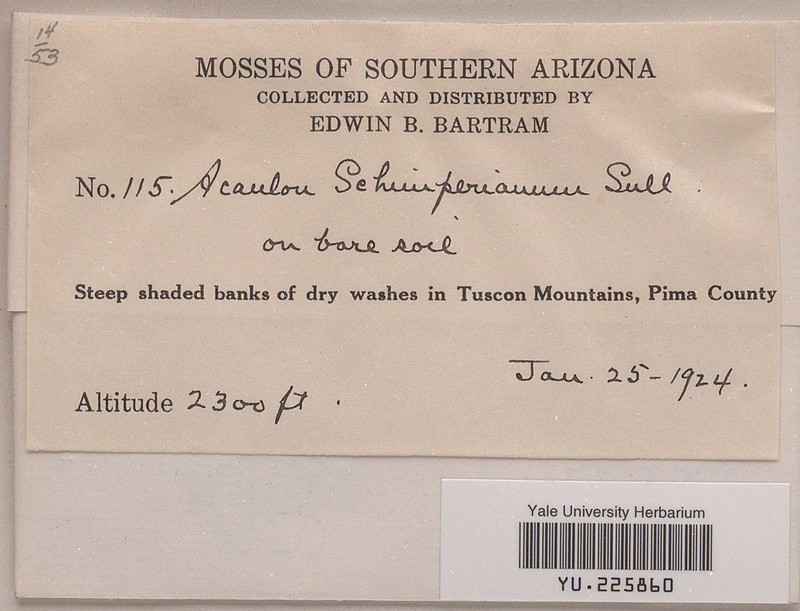 14
53
MOSSES OF SOUTHERN ARIZONA
COLLECTED AND DISTRIBUTED BY
EDWIN B. BARTRAM
No. 115. Acaulon Schimperianum Sull.
on bare soil
Steep shaded banks of dry washes in Tuscon Mountains, Pima County
Jan. 25-1924.
Altitude 2300 ft.
Yale University Herbarium
YU.225860